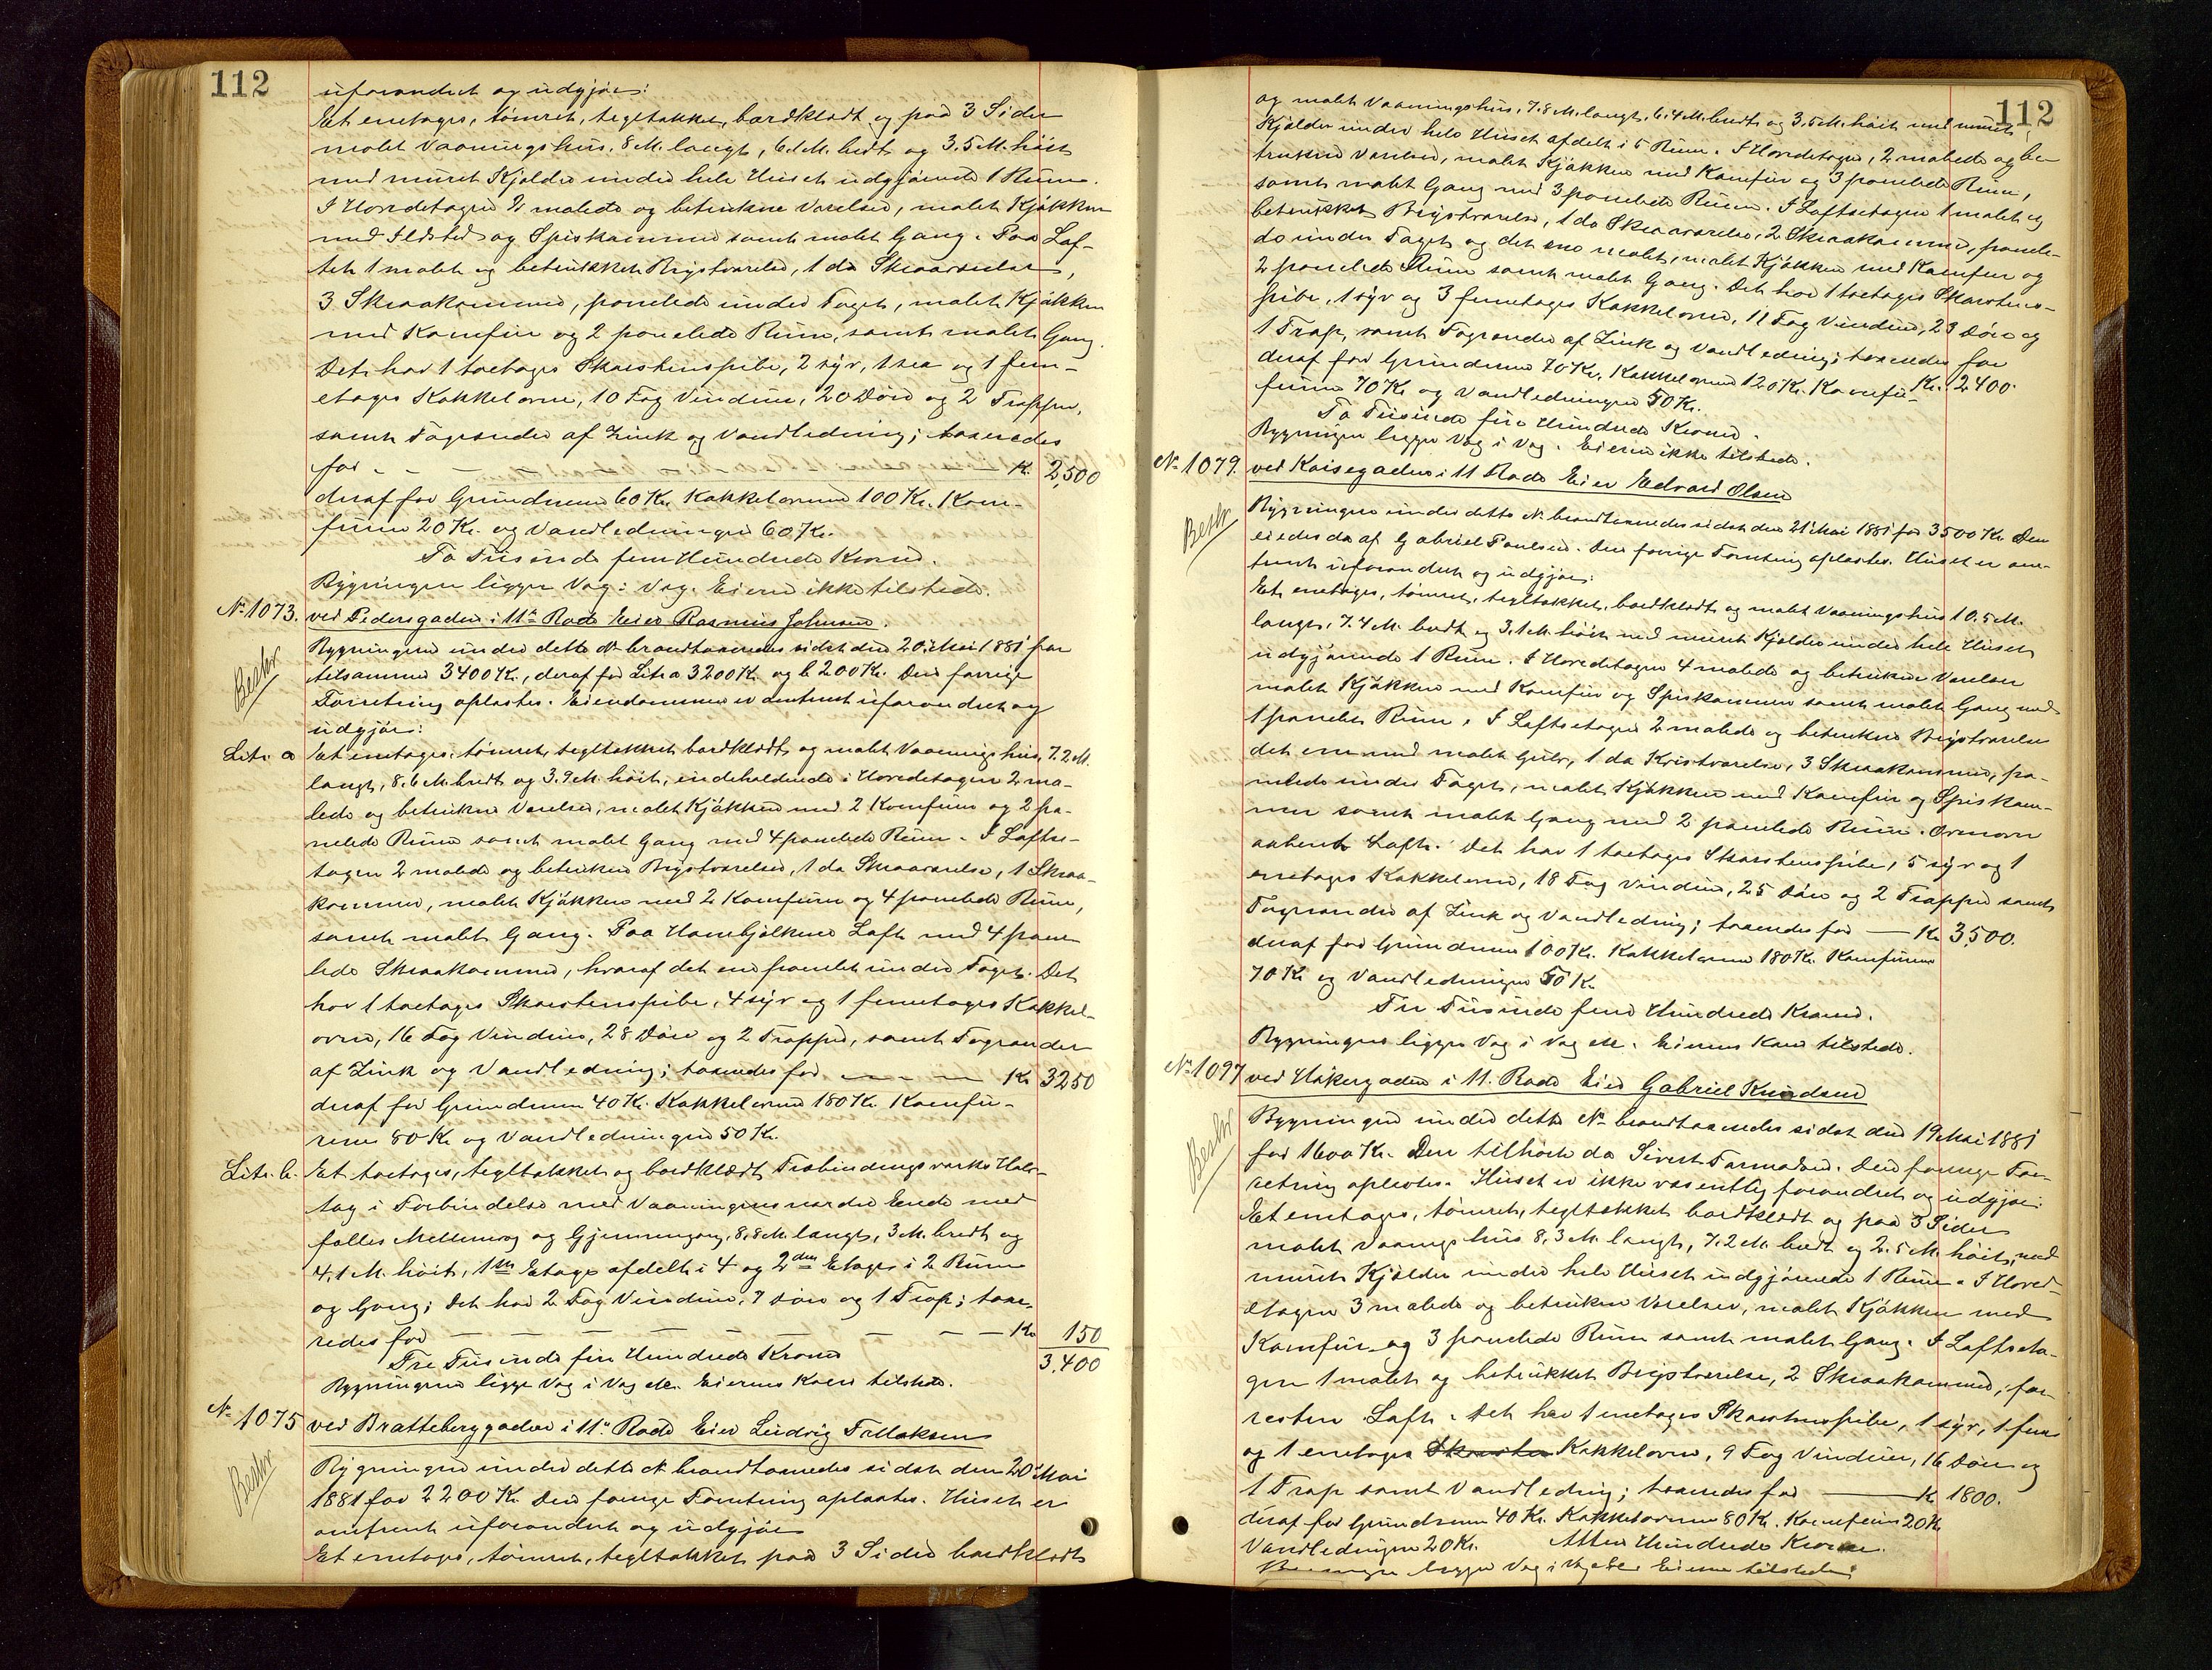 112
uforandret og udgjør:
Et enetages, tømret, tegltakket, bordklædt og paa 3 Sider
malet Vaaningshus. 8 M. langt, 6.1 M. bredt og 3.5 M. høit
med muret Kjælder under hele Huset udgjørende 1 Rum.
I Hovedetagen 2 malede og betrukne Værelser, malet Kjøkken
med Ildsted og Spiskammer samt malet Gang. Paa Lof-
tet 1 malet og betrukket Brystværelse, 1 do Skraaværelse,
3 Skraakammere, panelede under Taget, malet Kjøkken
med Komfur og 2 panelede Rum, samt malet Gang.
Det har 1 toetages Skorstenspibe, 2 syv, 1 sex og 1 fem-
etages Kakkelovne, 10 Fag Vinduer, 20 Døre og 2 Trapper,
samt Tagrender af Zink og Vandledning; taxeredes
for - - - Kr. 2,500
deraf for Grundmuren 60 Kr. Kakkelovnene 100 Kr. Kom-
furene 20 Kr. og Vandledningen 60 Kr.
To Tusinde fem Hundrede Kroner.
Bygningen ligger Væg i Væg. Eieren ikke tilstede.
No 1073. ved Pedersgaden i 11te Rode Eier Rasmus Johnsen.
Bestr
Bygningerne under dette No brandtaxeredes sidst den 20de Mai 1881 for
tilsammen 3400 Kr., deraf for Litr a 3200 Kr. og b 200 Kr. Den forrige
Forretning oplæstes. Eiendommen er omtrent uforandret og
udgjør:
Litr. a Et enetages, tømret, tegltakket bordklædt og malet Vaaningshus, 7.2 M.
langt, 8.6 M. bredt og 3.9 M. høit, indeholdende i Hovedetagen 2 ma-
lede og betrukne Værelser, malet Kjøkken med 2 Komfurer og 2 pa-
nelede Rum samt malet Gang med 4 panelede Rum. I Loftse-
tagen 2 malede og betrukne Brystværelser, 1 do Skraaværelse, 1 Skraa-
kammer, malet Kjøkken med 2 Komfurer og 4 panelede Rum,
samt malet Gang. Paa Hanebjælkene Loft med 4 pane-
lede Skraakammere, hvoraf det ene panelet under Taget. Det
har 1 toetages Skorstenspibe, 4 syv og 1 femetages Kakkel-
ovne, 16 Fag Vinduer, 28 Døre og 2 Trapper, samt Tagrender
af Zink og Vandledning; taxeredes for - - - Kr 3250
deraf for Grundmuren 40 Kr. Kakkelovnene 180 Kr. Komfu-
rene 80 Kr og Vandledningen 50 Kr.
Litr. b. Et toetages, tegltakket og bordklædt Træbindingsværks Halv-
tag i Forbindelse med Vaaningens nordre Ende med
fælles Mellemvæg og Gjennemgang, 8,8 M. langt, 3 M. bredt og
4,1 M. høit, 1ste Etage afdelt i 4 og 2den Etage i 2 Rum
og Gang; det har 2 Fag Vinduer, 7 Døre og 1 Trap; taxe-
redes for - - - Kr 150
Tre Tusinde fire Hundrede Kroner 3,400
Bygningerne ligger Væg i Væg etc. Eierens Kone tilstede.
No 1075 ved Bratteberggaden i 11te Rode Eier Ludvig Tollaksen
Bestr
Bygningen under dette No brandtaxeredes sidst den 20de Mai
1881 for 2200 Kr. Den forrige Forretning oplæstes. Huset er
omtrent uforandret og udgjør
Et enetages, tømret, tegltakket paa 3 Sider bordklædt
112
og malet Vaaningshus, 7.8 M. langt, 6.4 M. bredt og 3,5 M. høit med muret
Kjælder under hele Huset afdelt i 5 Rum. I Hovedetagen, 2 malede og be-
trukne Værelser, malet Kjøkken med Komfur og 3 panelede Rum,
samt malet Gang med 3 panelede Rum. I Loftsetagen 1 malet og
betrukket Brystværelse, 1 do Skraaværelse, 2 Skraakammere, panele-
de under Taget og det ene malet, malet Kjøkken med Komfur og
2 panelede Rum samt malet Gang. Det har 1 toetages Skorstens-
pibe, 1 syv og 3 femetages Kakkelovne, 11 Fag Vinduer, 23 Døre og
1 Trap, samt Tagrender af Zink og Vandledning; taxeredes for Kr. 2400.
deraf for Grundmuren 70 Kr, Kakkelovnene 120 Kr. Komfu-
furene 70 Kr og Vandledningen 50 Kr.
To Tusinde fire Hundrede Kroner.
Bygningen ligger Væg i Væg. Eieren ikke tilstede.
No 1079. ved Kaisegaden i 11 Rode Eier Edvard Olsen
Bestr
Bygningen under dette No brandtaxeredes sidst den 21de Mai 1881 for 3500 Kr. Den
eiedes da af Gabriel Paulsen. Den forrige Forretning oplæstes. Huset er om-
trent uforandret og udgjør:
Et enetages, tømret, tegltakket, bordklædt og malet Vaaningshus 10.5 M.
langt, 7.4 M. bredt og 3,1 M. høit med muret Kjælder under hele Huset
udgjørende 1 Rum. I Hovedetagen 4 malede og betrukne Værelser
malet Kjøkken med Komfur og Spiskammer samt malet Gang med
1 panelet Rum. I Loftsetagen 2 malede og betrukne Brystværelser
det ene med malet Gulv, 1 do Kvistværelse, 3 Skraakammere, pa-
nelede under Taget, malet Kjøkken med Komfur og Spiskam-
mer samt malet Gang med 2 panelede Rum. Ovenover
aabent Loft. Det har 1 toetages Skorstenspibe, 5 syv og 1
enetages Kakkelovne, 18 Fag Vinduer, 25 Døre og 2 Trapper samt
Tagrender af Zink og Vandledning; taxeredes for — Kr 3,500.
deraf for Grundmuren 100 Kr. Kakkelovnene 180 Kr. Komfurene
70 Kr og Vandledningen 50 Kr.
Tre Tusinde fem Hundrede Kroner.
Bygningen ligger Væg i Væg etc. Eierens Kone tilstede.
No 1097 ved Økergaden i 11. Rode Eier Gabriel Knudsen
Bestr
Bygningen under dette No brandtaxeredes sidst den 19 Mai 1881
for 1600 Kr. Den tilhørte da Sivert Tormodsen. Den forrige For-
retning oplæstes. Huset er ikke væsentlig forandret og udgjør:
Et enetages, tømret, tegltakket bordklædt og paa 3 Sider
malet Vaaningshus 8,3 M. langt, 7,2 M. bredt og 2.5 M. høit, med
muret Kjælder under hele Huset udgjørende 1 Rum. I Hoved-
etagen 3 malede og betrukne Værelser, malet Kjøkken med
Komfur og 3 panelede Rum samt malet Gang. I Loftseta-
gen 1 malet og betrukket Brystværelse, 2 Skraakammere, for-
resten Loft. Det har 1 enetages Skorstenspibe, 1 syv, 1 fem
og 1 enetages Kakkelovne, 9 Fag Vinduer, 16 Døre og
1 Trap samt Vandledning; taxeredes for — Kr 1800.
deraf for Grundmuren 40 Kr. Kakkelovnene 80 Kr. Komfuren 20 Kr
Vandledningen 20 Kr. Atten Hundrede Kroner.
Bygningen ligger Væg i Væg etc. Eieren tilstede.